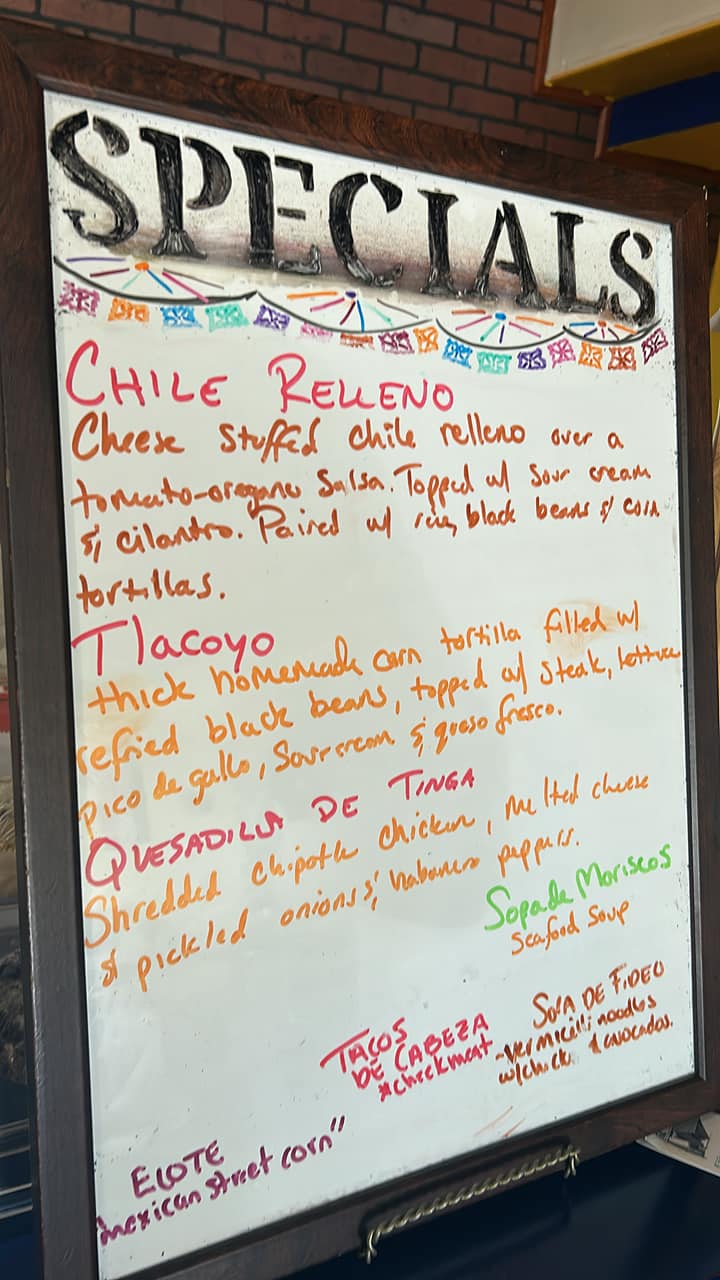 SPECIALS
CHILE RELLENO
Cheese stuffed chile relleno over a
tomato-oregano salsa. Topped w/ sour cream
& cilantro. Paired w/ rice, black beans & corn
tortillas.
Tlacoyo
thick homemade corn tortilla filled w/
refried black beans, topped w/ steak, lettuce
pico de gallo, sour cream & queso fresco.
QUESADILLA DE TINGA
Shredded chipotle chicken, melted cheese
& pickled onions & habanero peppers.
Sopa de Mariscos
Seafood Soup
SOPA DE FIDEO
-vermicilli noodles
w/chick & avocados.
TACOS
DE CABEZA
*cheekmeat
ELOTE
mexican street corn"